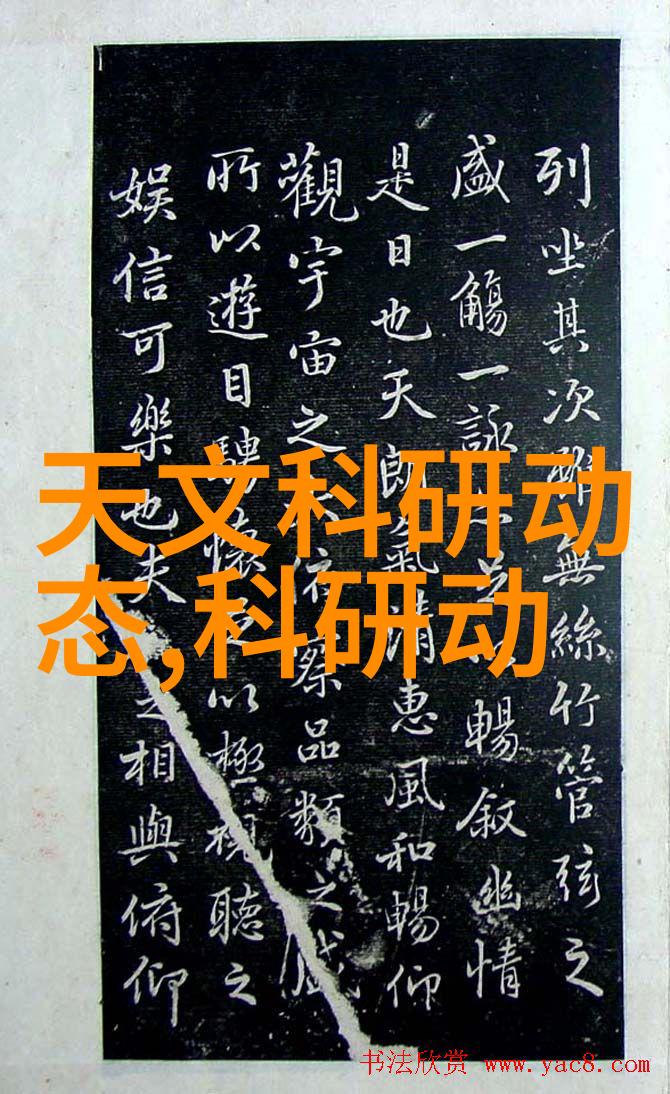 列坐其次雖無絲竹管弦之
盛一觴一詠亦足以暢叙幽情
是日也天朗氣清惠風和暢仰
觀宇宙之俯察品類之盛
所以遊目騁懷足以極視聽之
娱信可樂也夫之相與俯仰
天文科研动
态,科研动
书法欣赏 www.yac8.com